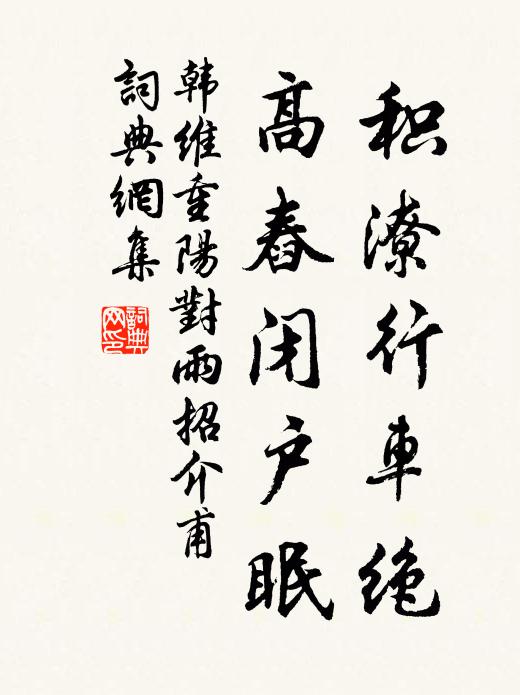 积潦行車绝
高舂闭户眠
韩维重陽對雨招介甫
詞典網集
詞典网印